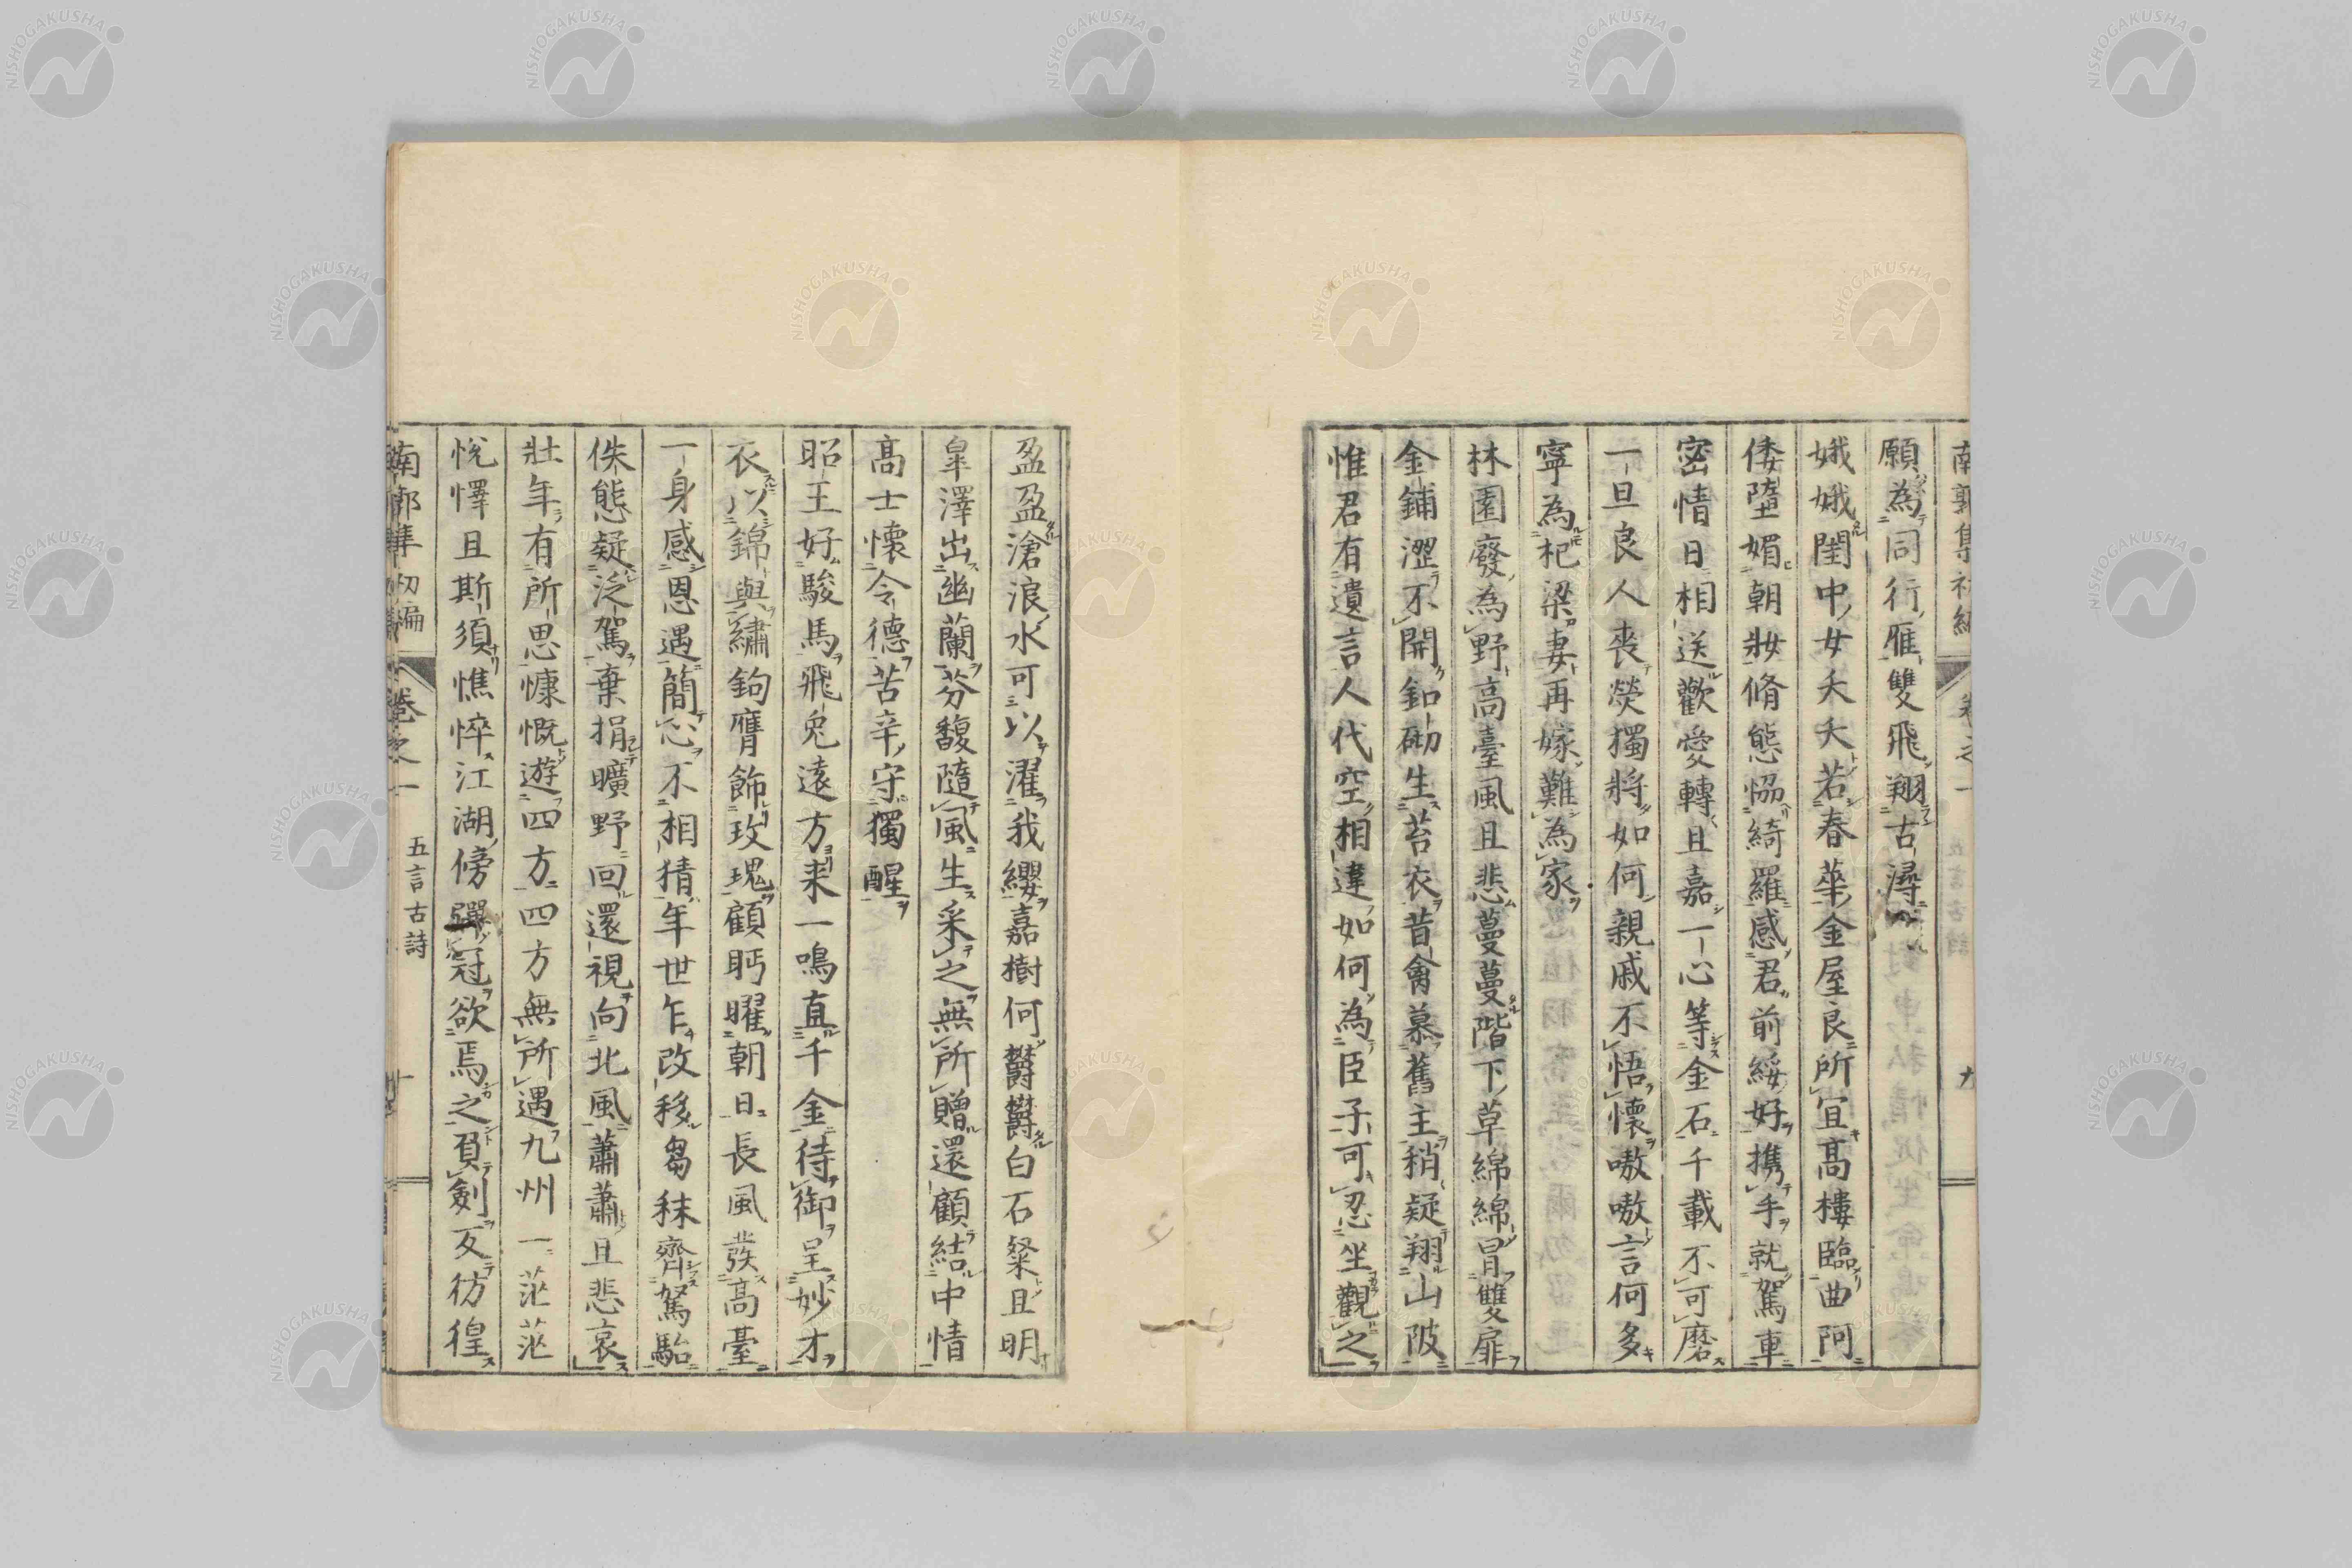 願為同行雁雙飛翔古潯
娥娥閨中女夭夭若春華金屋良所宜高樓臨曲阿
倭墮媚朝妝脩態恊綺羅感君前綏好攜手就駕車
密情日相送歡愛轉且嘉一心等金石千載不可磨
一旦良人喪煢獨將如何親戚不悟懷嗷嗷言何多
寧為杞梁妻再嫁難為家
林園廢為野高臺風且悲蔓蔓階下草綿綿冒雙扉
金鋪澀不開釦砌生苔衣昔禽慕舊主稍疑翔山陂
惟君有遺言人代空相違如何為臣子可忍坐觀之
盈盈滄浪水可以濯我纓嘉樹何欝欝白石粲且明
皐澤出幽蘭芬馥隨風生采之無所贈還顧結中情
高士懷令德苦辛守獨醒
昭王好駿馬飛兔遠方来一鳴直千金待御呈妙才
衣以錦與繡鉤膺飾玫瑰顧眄曜朝日長風發高臺
一身感恩遇簡心不相猜年世乍改移芻秣齊駑駘
佚態疑泛駕棄捐曠野回還視向北風蕭蕭且悲哀
壯年有所思慷慨遊四方四方無所遇九州一茫茫
悅懌且斯須憔悴江湖傍彈冠欲焉之負劍又彷徨
南郭集初編 卷之一 五言古詩 十